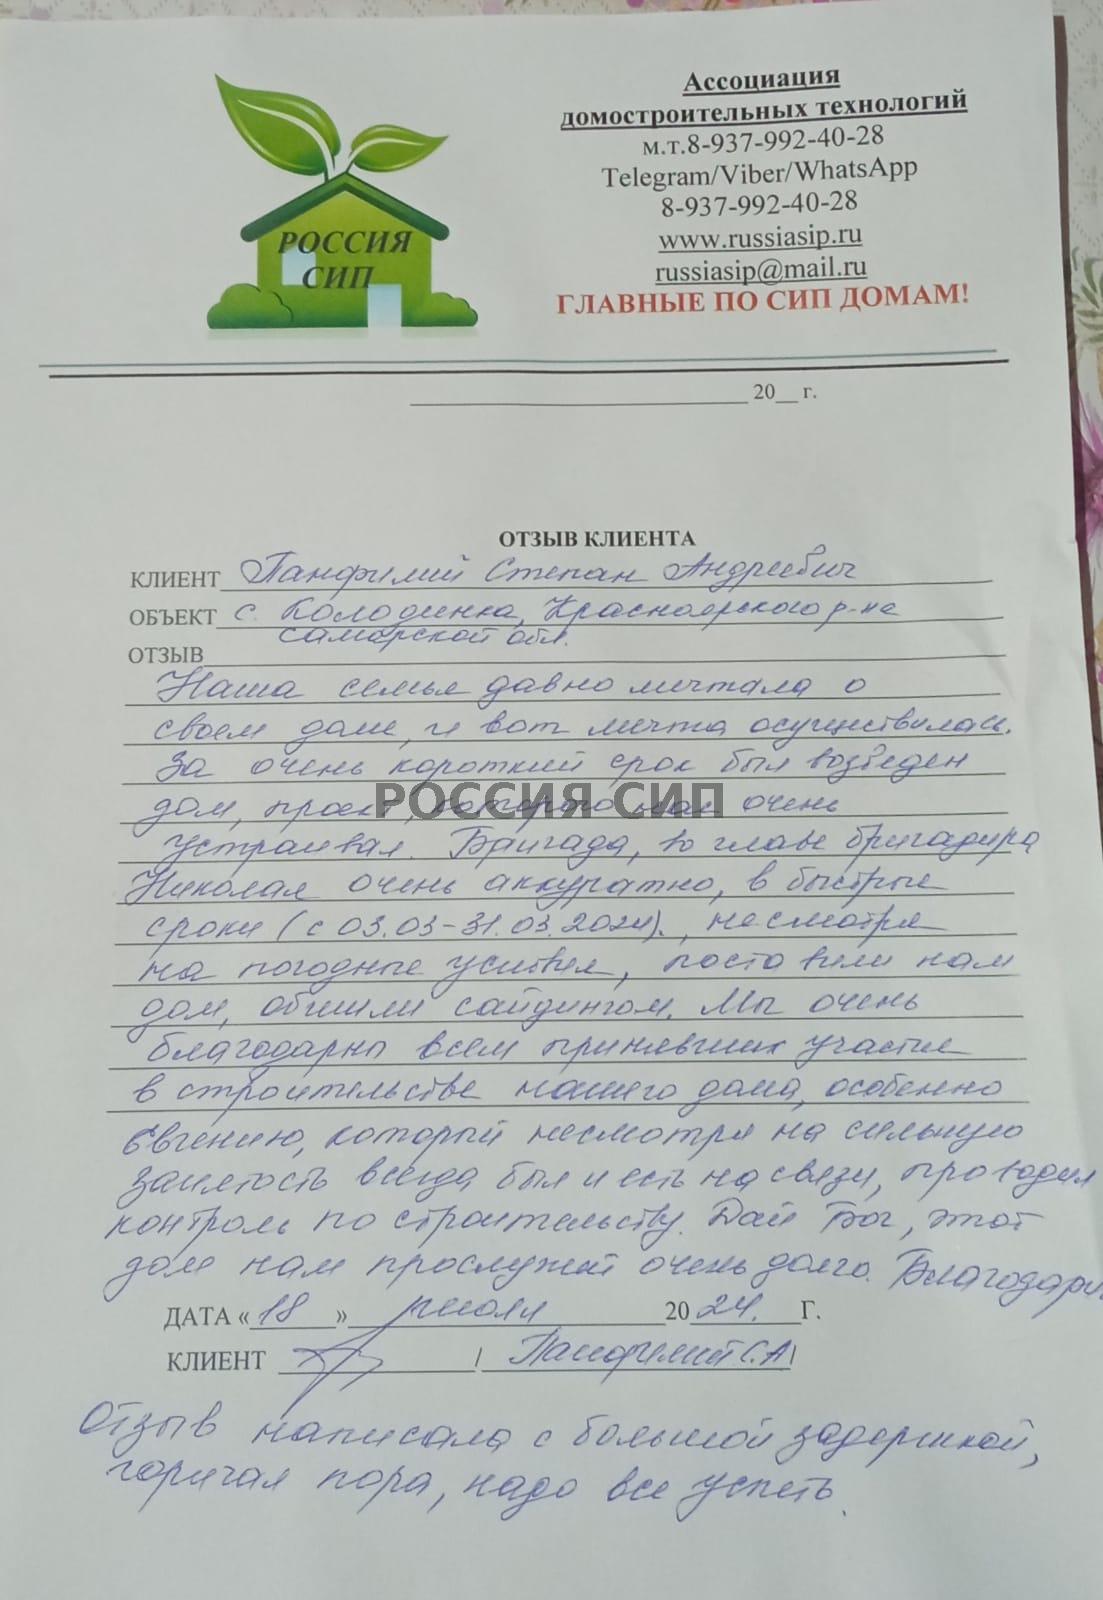 РОССИЯ
СИП
Ассоциация
домостроительных технологий
м.т.8-937-992-40-28
Telegram/Viber/WhatsApp
8-937-992-40-28
www.russiasip.ru
russiasip@mail.ru
ГЛАВНЫЕ ПО СИП ДОМАМ!
20__ г.
ОТЗЫВ КЛИЕНТА
КЛИЕНТ Панфилий Степан Андреевич
ОБЪЕКТ с. Колодинка, Красноярского р-на
Самарской обл.
ОТЗЫВ
Наша семья давно мечтала о
своем доме, и вот мечта осуществилась.
За очень короткий срок был возведен
дом, проект, которого нам очень
РОССИЯ СИП
устраивал. Бригада, во главе бригадира
Николая очень аккуратно, в быстрые
сроки (с 03.03-31.03.2024)., несмотря
на погодные условия, поставили нам
дом, обшили сайдингом. Мы очень
благодарны всем принявших участие
в строительстве нашего дома, особенно
Евгению, который несмотря на сильную
занятость всегда был и есть на связи, проводил
контроль по строительству. Дай Бог, этот
дом нам прослужит очень долго. Благодарю
ДАТА «18» июля 2024. Г.
КЛИЕНТ / Панфилий С.А/
Отзыв написала с большой задержкой,
горячая пора, надо все успеть.